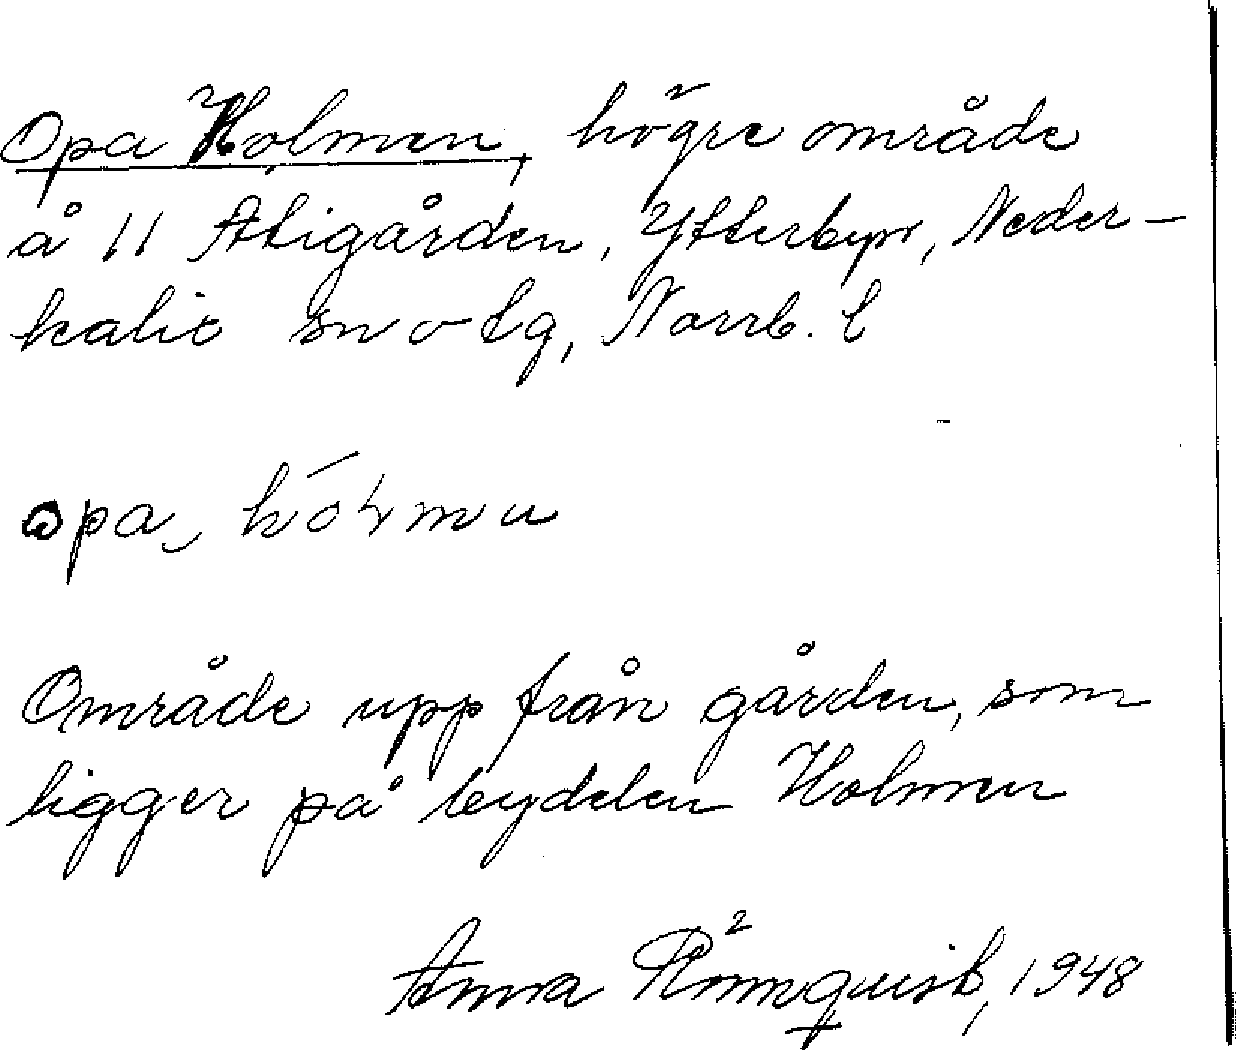 Opa Holmen, högre område
å 11 Atigården, Ytterbyn, Neder-
kalix sn o tg, Norrb. l
opa
Område upp från gården, som
ligger på bydelen Holmen
Anna Rönnquist, 1948